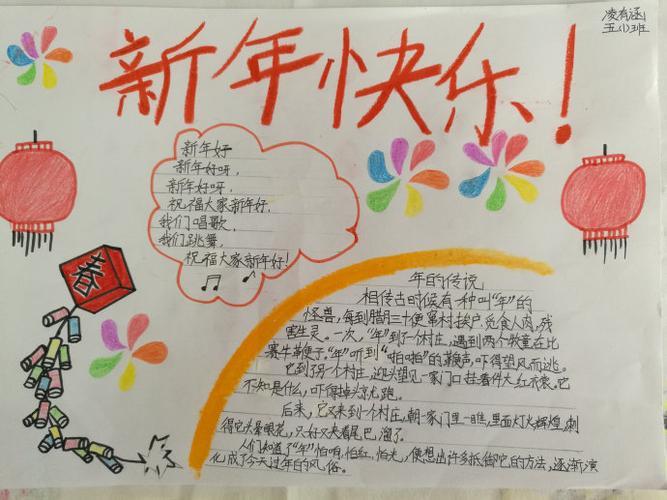 凌有涵
五(1)班
新年快乐!
新年好
新年好呀,
新年好呀,
祝福大家新年好.
我们唱歌,
我们跳舞,
祝福大家新年好!
春
年的传说
相传古时候有一种叫“年”的
怪兽,每到腊月三十便窜村挨户,觅食人肉,残
害生灵。一次,“年”到了个村庄,遇到两个牧童在比
赛牛鞭子。“年”听到“啪啪啪”的鞭声,吓得望风而逃。
它到了另一个村庄,迎头望见一家门口挂着件大红衣裳。它
不知是什么,吓得掉头就跑。
后来,它又来到一个村庄,朝一家门里一瞧,里面灯火辉煌,刺
得它头晕眼花,只好又夹着尾巴溜了。
人们知道了“年”怕响,怕红,怕光,便想出许多抵御它的方法,逐渐演
化成了今天过年的风俗。